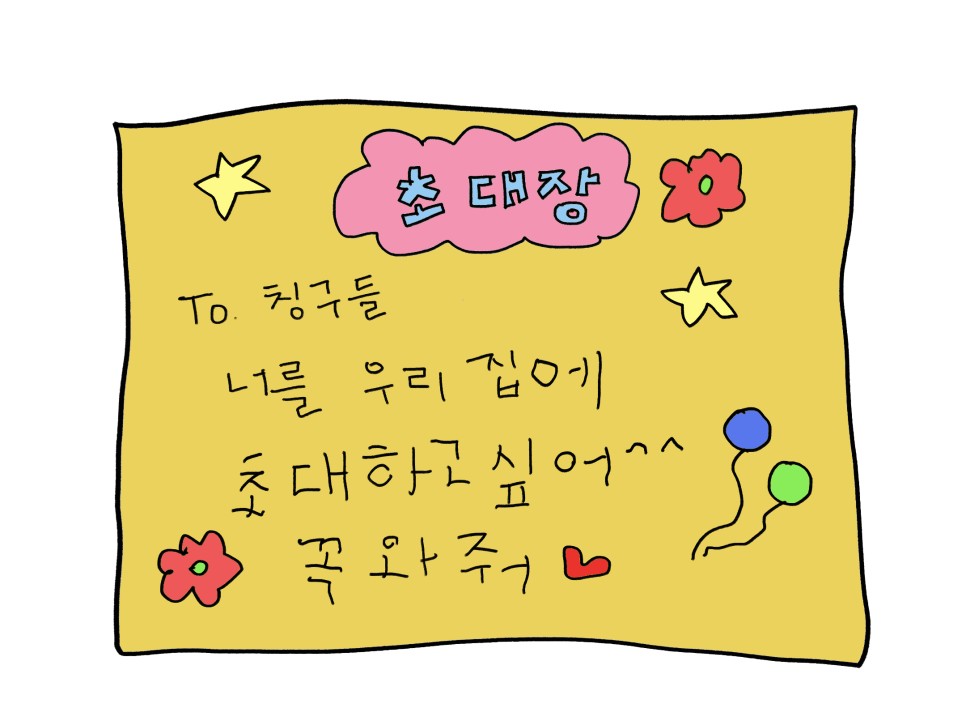 초대장
To. 칭구들
너를 우리 집에
초대하고싶어^^
꼭 와줘